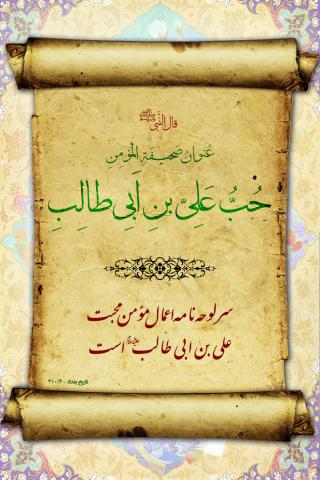 قال النَّبي ﷺ
عُنوانُ صَحیفَةِ الْمُؤمِنِ
حُبُّ عَلِیِّ بنِ اَبی طالِبِ
سر لوحه نامه اعمال مؤمن محبت
علی بن ابی طالب علیه‌السلام است
تاریخ بغداد - ۴۱۰/۴